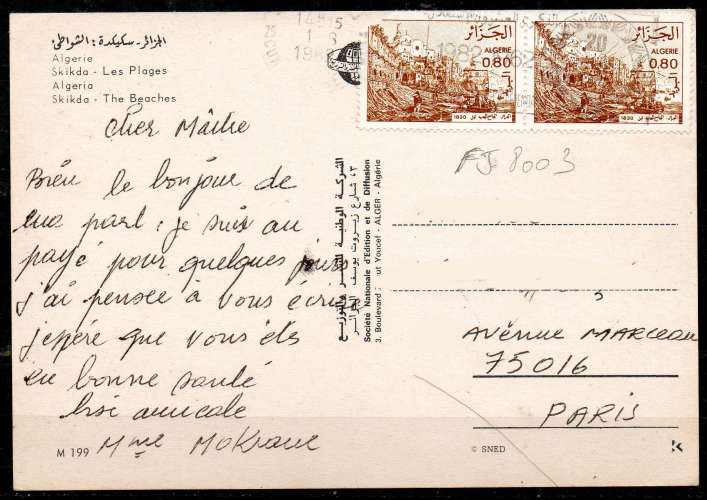 الجزائر - سكيكدة : الشواطئ
Algerie
Skikda - Les Plages
Algeria
Skikda - The Beaches
Cher Maître
Bien le bonjour de
ma part : je suis au
payé pour quelques jours
j'ai pensee à vous écrire
j'epère que vous êts
en bonne santé
bise amicale
Mme Mokrane
M 199
الشركة الوطنية للنشر والتوزيع
٣، شارع زيروت يوسف - الجزائر
Société Nationale d'Edition et de Diffusion
3, Boulevard ut Youcef - ALGER - Algérie
1982
الجزائر
ALGERIE
0.80
1830
الجزائر
ALGERIE
0.80
1830
20
FJ 8003
AVENUE MARCEAU
75016
PARIS
© SNED